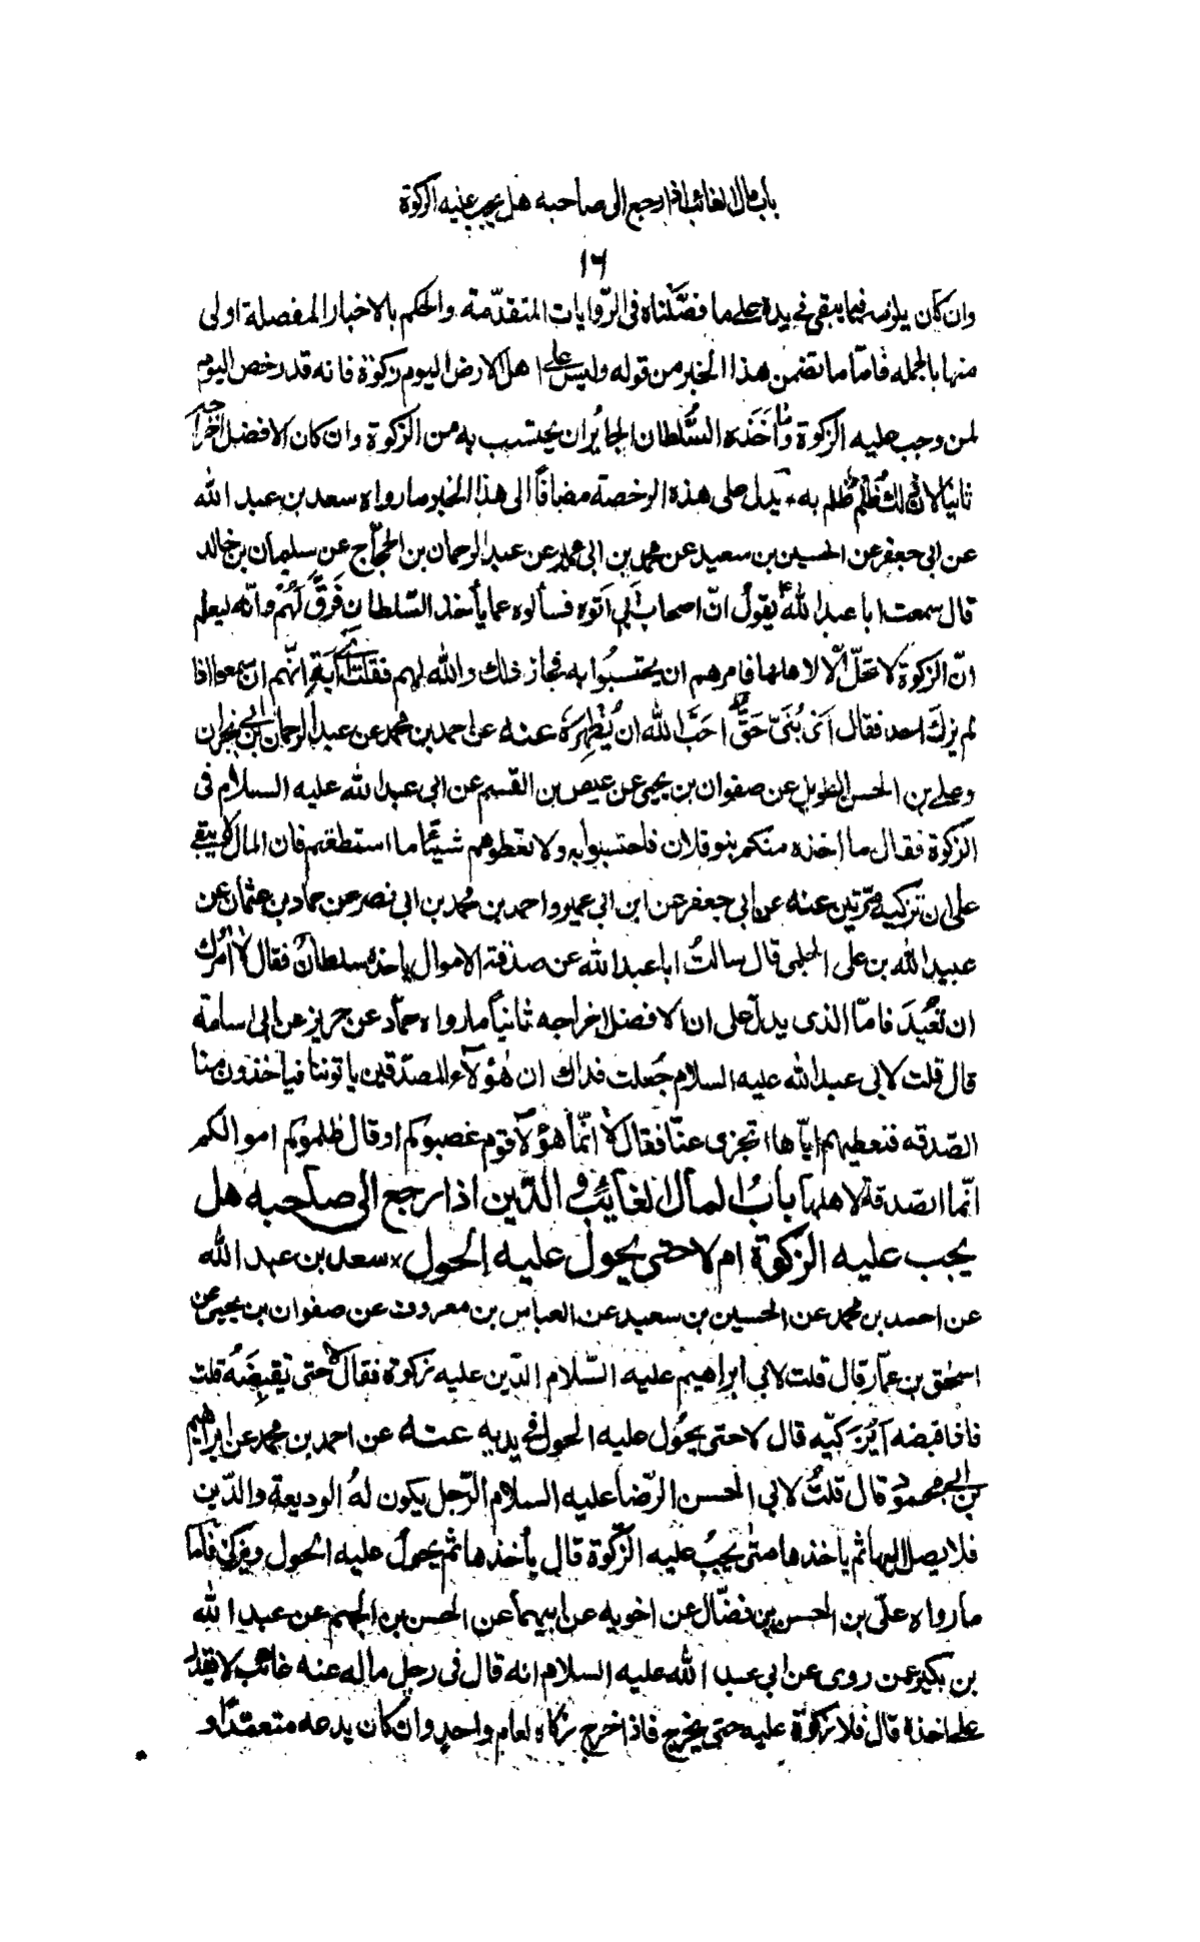 باب مال الغائب اذا رجع الى صاحبه هل يجب عليه الزكوة
١٦
وان كان يلزمه فيما يبقى في يده على ما فصّلناه فى الرّوايات المتقدّمة والحكم بالاخبار المفصلة اولى
منها بالجمله فامّا ما تضمن هذا الخبر من قوله وليس على اهل الارض اليوم زكوة فانه قد رخص اليوم
لمن وجب عليه الزكوة وأخذه السُّلطان الجايُران يحتسب به من الزكوة وان كان الافضل اخراجه
ثانيًا لانّ ذلك ظُلم ظلم به يدل على هذه الرخصة مضافًا الى هذا الخبر ما رواه سعد بن عبد الله
عن ابى جعفر عن الحسين بن سعيد عن محمد بن ابى عمير عن عبد الرحمان بن الحجّاج عن سليمان بن خالد
قال سمعت ابا عبد الله ع يقولُ انّ اصحاب ابى اتوه فسألوه عما يأخذ السّلطان فَرقَّ لهُم وانّه ليعلم
انّ الزكوة لا تحلّ الّا لاهلها فامرهم ان يحتسبُوا به فجاز ذلك والله لهم فقلت اى ابَةِ انّهم ان سمعوا اذا
لم يزكّ احد فقال اىْ بُنَىّ حَقٌّ احَبَّ الله ان يُظهِرهُ عنه عن احمد بن محمد عن عبد الرحمان بن ابى نجران
وعلى بن الحسن الطويل عن صفوان بن يحيى عن عيص بن القسم عن ابى عبد الله عليه السلام فى
الزكوة فقال ما اخذه منكم بنو فلان فاحتسبوا به ولا تعطوهم شيئًا ما استطعتم فان المال لا يبقى
على ان تزكيه مرّتين عنه عن ابى جعفر عن ابن ابى عمير واحمد بن محمد بن ابى نصر عن حماد بن عثمان عن
عبيد الله بن على الحلبى قال سالتُ ابا عبد الله عن صدقة الاموال ياخذه سلطانٌ فقال لا آمُرك
ان تُعيدَ فامّا الذى يدلّ على ان الافضل اخراجه ثانيًا ما رواه حمّاد عن حريز عن ابى اسامة
قال قلت لابى عبد الله عليه السلام جُعلت فداك ان هؤلآء المصدّقين ياتوننا فيأخذون منا
الصّدقه فنعطيهم ايّاها اتجزى عنّا فقال لا انّما هؤلآ قوم غصبوكم او قال ظلموكم اموالكم
انّما الصّدقة لاهلها بابُ المال الغائب والدّين اذا رجع الى صاحبه هل
يجب عليه الزكوة ام لا حتى يحول عليه الحول سعد بن عبد الله
عن احمد بن محمد عن الحسين بن سعيد عن العباس بن معروف عن صفوان بن يحيى عن
اسحٰق بن عمّار قال قلت لابى ابراهيم عليه السّلام الدّين عليه زكوة فقال لا حتى تقبضَهُ قلت
فاذا قبضه أيُزَكيّه قال لا حتى يحُول عليه الحول فى يديه عنه عن احمد بن محمد عن ابراهيم
بن ابى محمود قال قلتُ لابى الحسن الرّضا عليه السلام الرّجل يكون لهُ الوديعة والدّين
فلا يصل اليها ثم ياخذها متى يجبُ عليه الزّكوة قال يأخذها ثم يحولُ عليه الحول ويزكىّ فامّا
ما رواه علىّ بن الحسن بن فضّال عن اخويه عن ابيهما عن الحسن بن الجهم عن عبد الله
بن بكير عمن روى عن ابى عبد الله عليه السلام انه قال فى رجل ماله عنه غائب لا يقدر
على اخذه قال فلا زكوة عليه حتى يخرج فاذا خرج زكاه لعام واحد وان كان يدعه متعمّدًا و